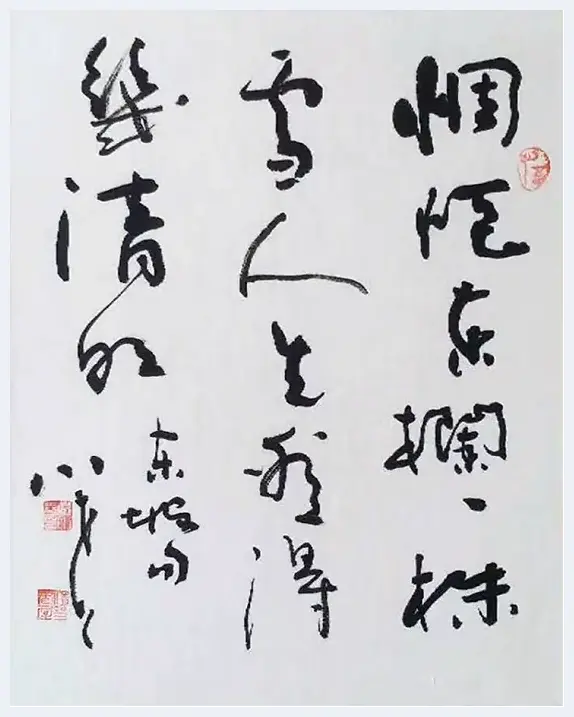 惆怅东栏一株
雪人生看得
几清明
东坡句